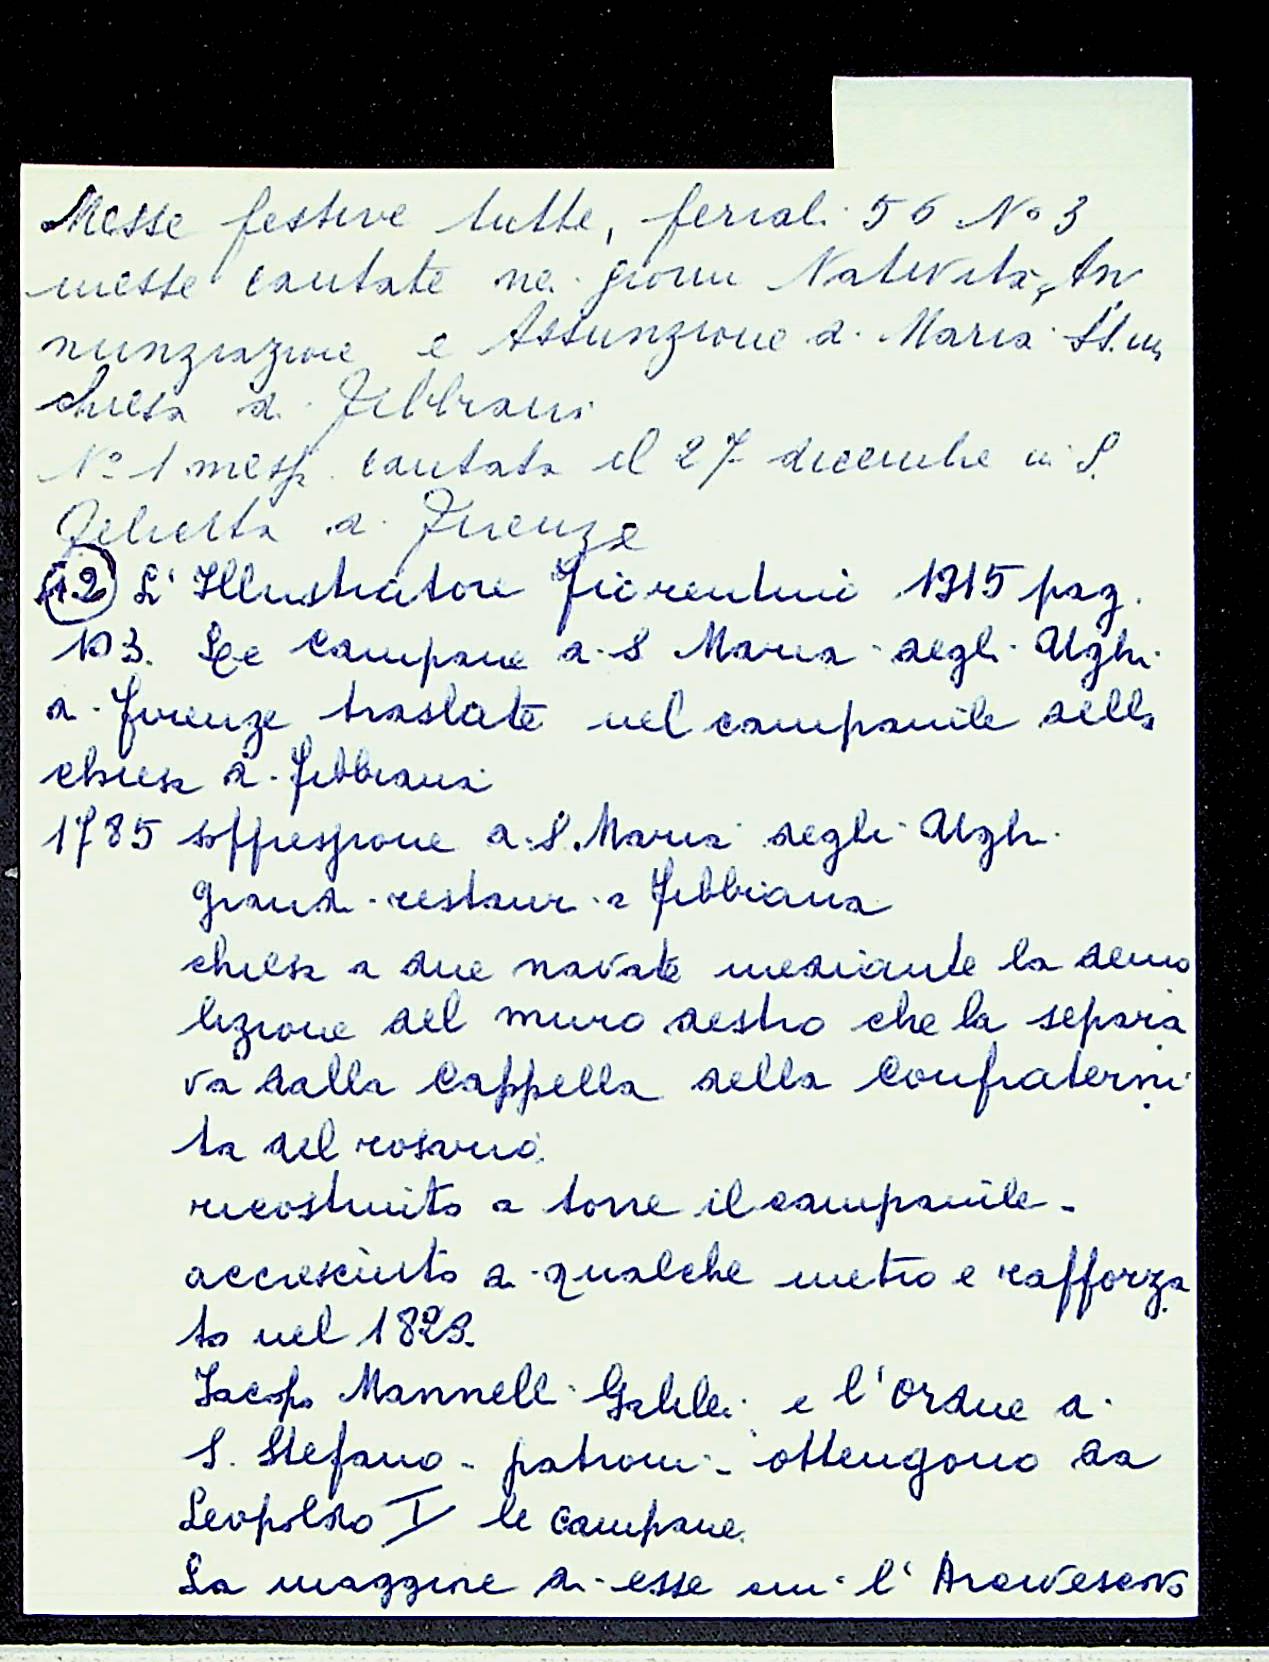 Messe festive tutte, feriali 56 N° 3
messe cantate nei giorni Natività, An
nunziazione e Assunzione di Maria SS. in
chiesa di Fibbiana
N° 1 messa cantata il 27 dicembre in S.
Felicita di Firenze
12 L'Illustratore Fiorentino 1915 pag.
103. Le campane di S Maria degli Ughi
di Firenze traslate nel campanile della
chiesa di Fibbiana
1785 soppressione di S. Maria degli Ughi
Grandi restauri a Fibbiana
chiesa a due navate mediante la demo
lizione del muro destro che la separa
va dalla Cappella della Confraterni
ta del rosario.
ricostruito a torre il campanile -
accresciuto di qualche metro e rafforza
to nel 1823.
Jacopo Mannelli Galilei e l'Ordine di
S. Stefano - patroni - ottengono da
Leopoldo I le campane.
La maggiore di esse cui l'Arcivescovo